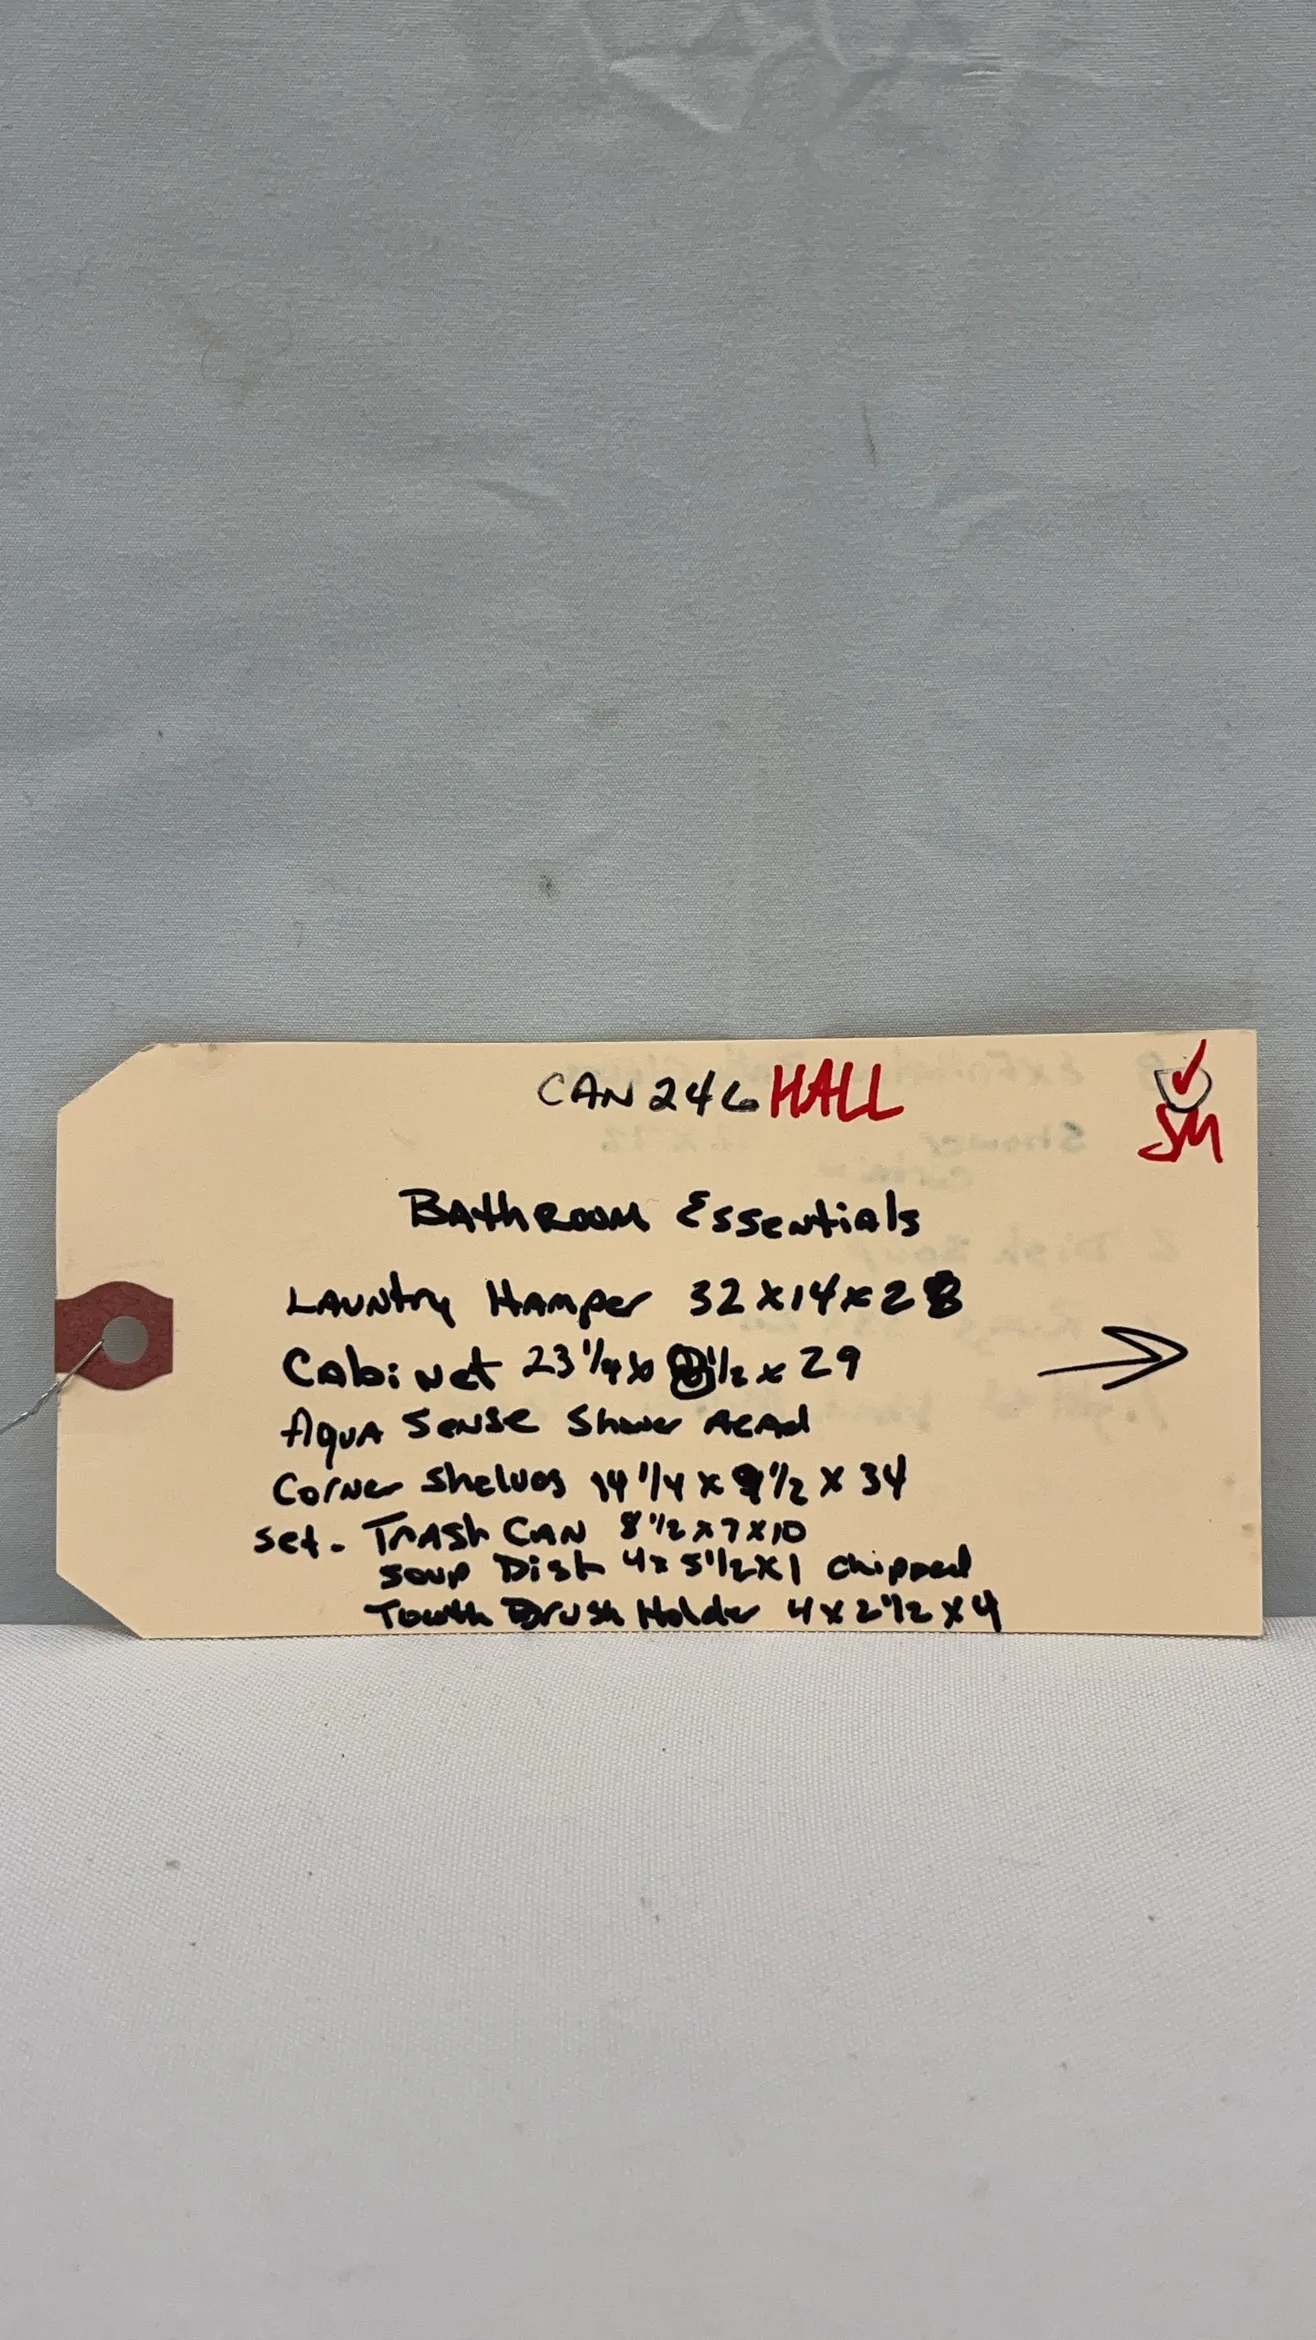 CAN 246 HALL
SM
BAthROOM Essentials
LAUNtry HAMper 32 x 14 x 28
Cabinet 23 1/4 x 1/2 x 29
AquA SENSE Shower HEAD
Corner Shelves 14 1/4 x 9 1/2 x 34
set. TrASh CAN 8 1/2 x 7 x 10
soup Dish 4 x 5 1/2 x 1 chipped
Tooth Brush Holder 4 x 2 1/2 x 4